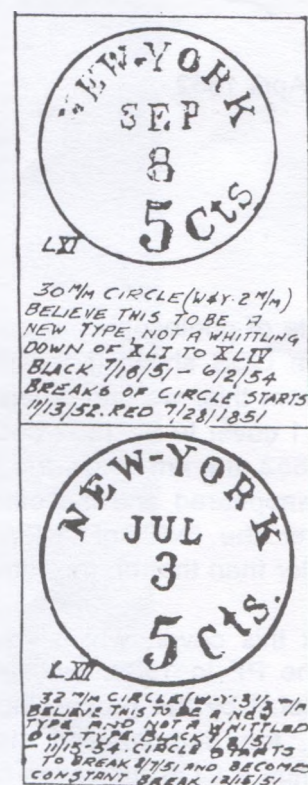 NEW-YORK
SEP
8
5 Cts
LXI
30 M/M CIRCLE (W&Y-2 M/M)
BELIEVE THIS TO BE A
NEW TYPE, NOT A WHITTLING
DOWN OF XLI TO XLIV
BLACK 7/18/51 - 6/2/54
BREAKS OF CIRCLE STARTS
11/13/52. RED 7/28/1851
NEW-YORK
JUL
3
5 Cts.
LXII
32 M/M CIRCLE (W-Y-3 1/2 M/M
BELIEVE THIS TO BE A NEW
TYPE AND NOT A WHITTLED
OUT TYPE. BLACK
- 11/15-54. CIRCLE STARTS
TO BREAK 8/7/51 AND BECOMES
CONSTANT BREAK 12/15/51